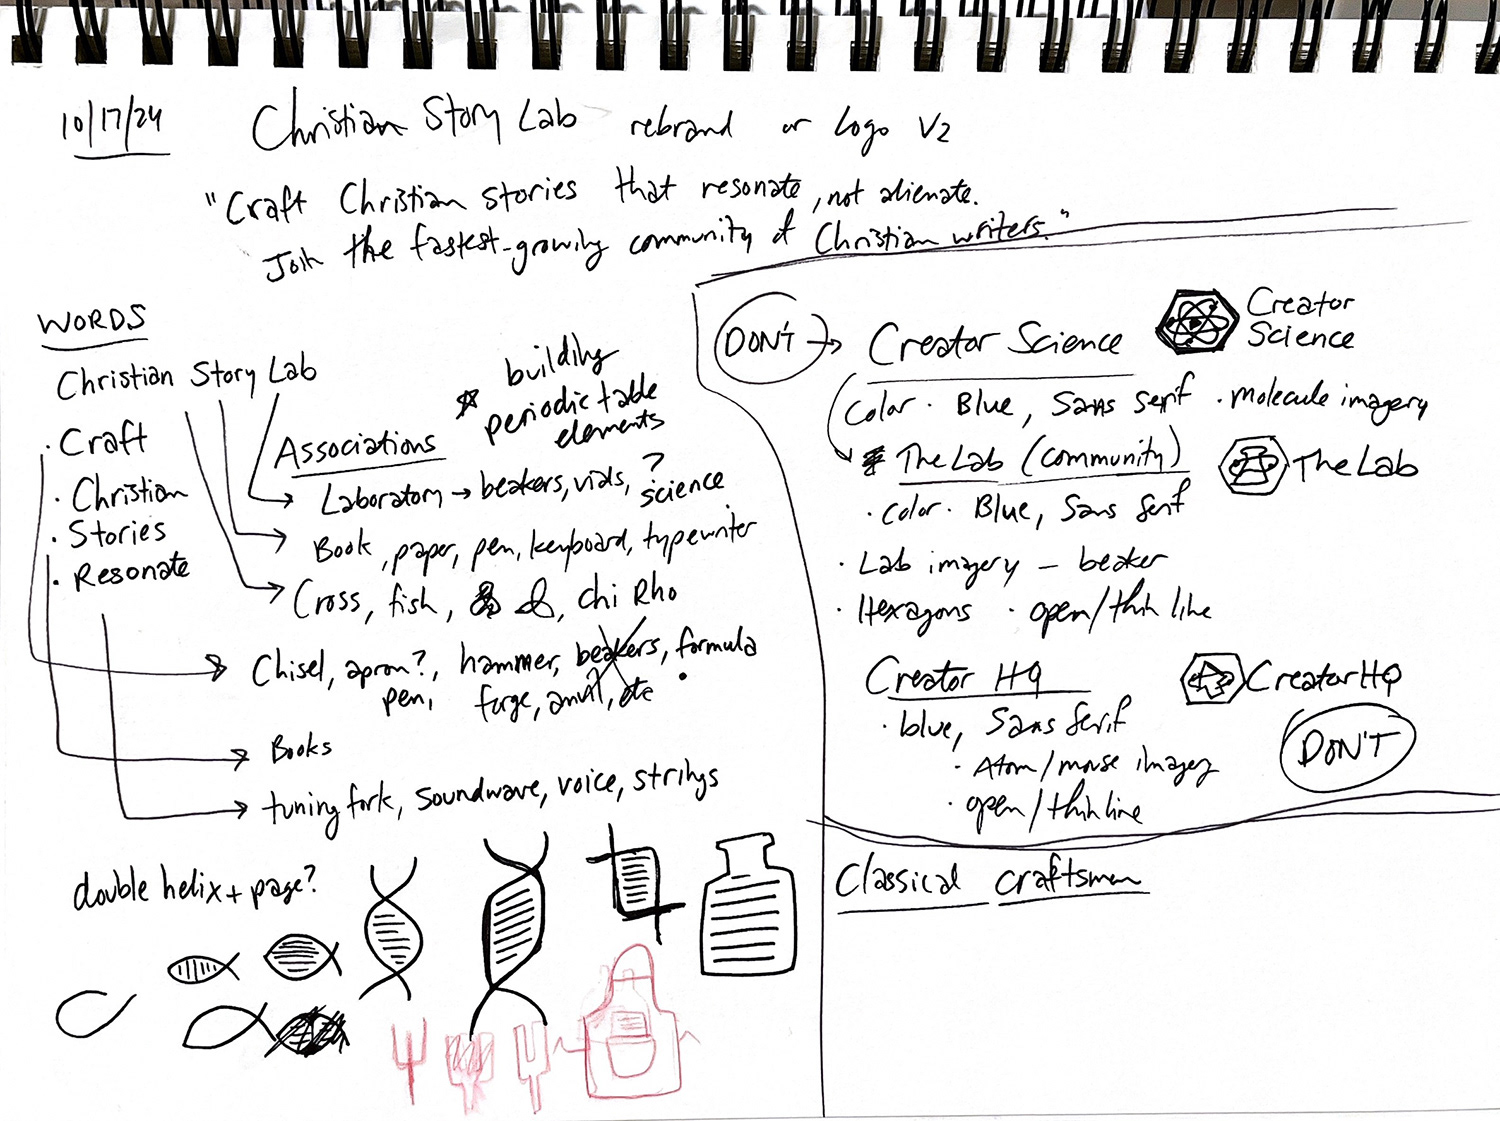 10/17/24
Christian Story Lab rebrand or logo V2
"Craft Christian Stories that resonate, not alienate.
Join the fastest-growing community of Christian writers."
WORDS
Christian Story Lab
· Craft
· Christian
· Stories
· Resonate
building
periodic table
elements
Associations
Laboratory → beakers, vials, science ?
Book, paper, pen, keyboard, typewriter
Cross, fish, Chi Rho
Chisel, apron?, hammer, beakers, formula
pen, forge, anvil, etc
Books
tuning fork, soundwave, voice, strings
double helix + page?
DON'T → Creator Science
Creator
Science
Color · Blue, Sans Serif · molecule imagery
The Lab (community)
The Lab
· Color · Blue, Sans Serif
· Lab imagery - beaker
· Hexagons · open/thin line
Creator HQ
Creator HQ
· blue, Sans Serif
· Atom/mouse imagery
· open/thin line
DON'T
Classical craftsmen